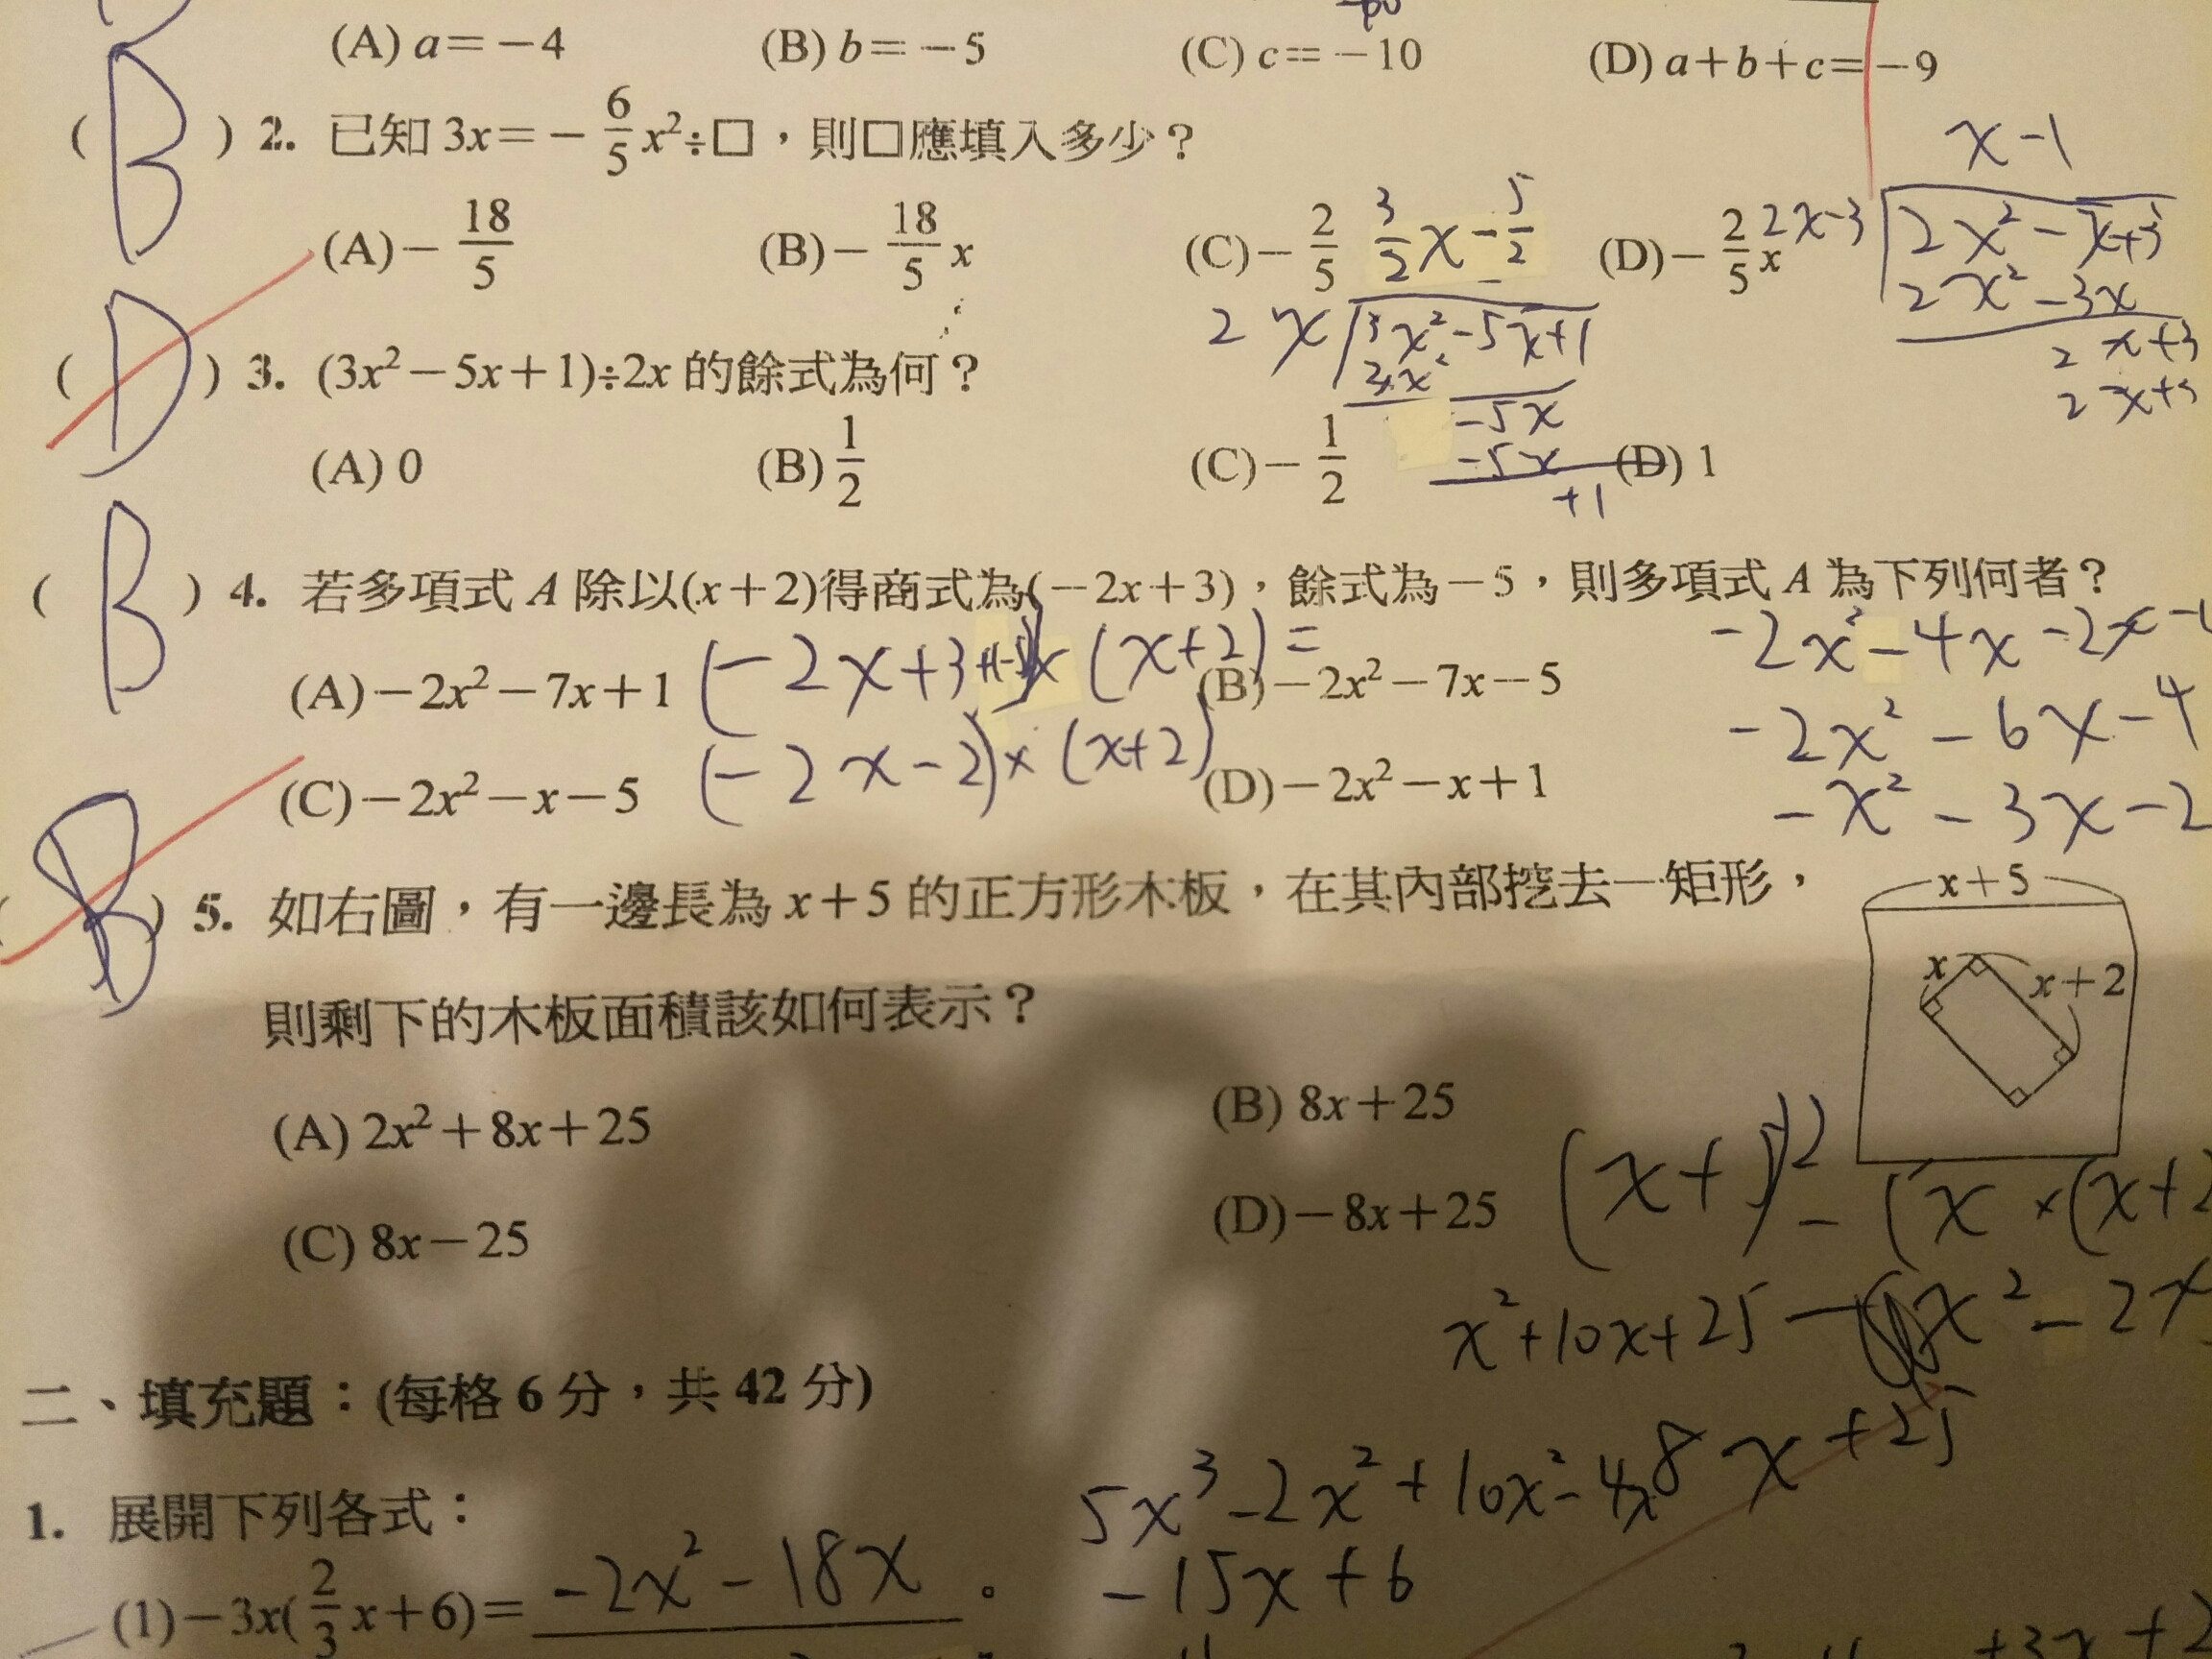 (A) a=−4 (B) b=−5 (C) c=−10 (D) a+b+c=−9
(B) 2. 已知 3x=−6/5x²÷□，則□應填入多少？
x-1
(A)−18/5 (B)−18/5x (C)−2/5 (D)−2/5x
3/2x-5/2
2x-3 2x²-x+3
2x²-3x
2x+3
2x 3x²-5x+1
3x²
-5x
-5x
+1
(D) 3. (3x²−5x+1)÷2x 的餘式為何？
(A) 0 (B) 1/2 (C)−1/2 (D) 1
(B) 4. 若多項式 A 除以(x+2)得商式為(−2x+3)，餘式為−5，則多項式 A 為下列何者？
(A)−2x²−7x+1 (B)−2x²−7x−5
(x+2)=
-2x²-4x-2x
(-2x-2)×(x+2)
-2x²-6x-4
(C)−2x²−x−5 (D)−2x²−x+1
-x²-3x-2
5. 如右圖，有一邊長為 x+5 的正方形木板，在其內部挖去一矩形，
則剩下的木板面積該如何表示？
x+5
x
x+2
(A) 2x²+8x+25 (B) 8x+25
(C) 8x−25 (D)−8x+25
(x+5)²-(x×(x+2
x²+10x+25- x²-2x
8x+25
二、填充題：(每格 6 分，共 42 分)
5x³-2x²+10x²-4x
-15x+6
1. 展開下列各式：
(1)−3x(2/3x+6)= -2x²-18x 。
+3x+2